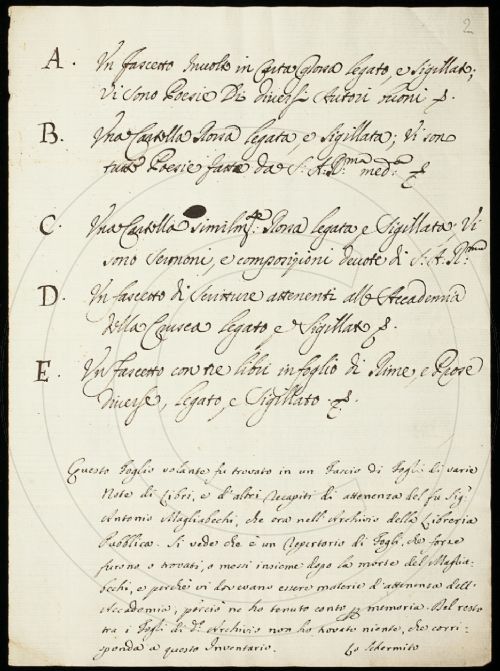 2
A. Un fascetto Involto in Carta Rossa legato e Sigillato;
Vi sono Poesie Di Diversi Autori buoni
B. Una Cartella Rossa legata e Sigillata; Vi son
tutte Poesie fatte da S. A. R.ma med.a
C. Una Cartella similm.te Rossa legata e Sigillata; Vi
sono Sermoni, e composizioni devote di S. A. R.ma
D. Un fascetto di Scritture attenenti alla Accademia
della Crusca legato, e Sigillato
E. Un fascetto con tre libri in foglio di Rime, e Prose
Diverse, legato, e Sigillato.
Questo foglio volante fu trovato in un Fascio di Fogli di varie
Note di Libri, e d'altri Recapiti di attenenza del fu Sig.
Antonio Magliabechi, che era nell'Archivio della Libreria
Pubblica. Si vede che è un Repertorio di Fogli, che forse
furono o trovati, o messi insieme dopo la morte del Maglia-
bechi, e perchè vi dovevano essere materie d'attenenza dell'
Accademia, perciò ne ho tenuto conto memoria. Del resto
tra i Fogli di d.o Archivio non ho trovato niente, che corri-
sponda a questo Inventario. Lo Schermito